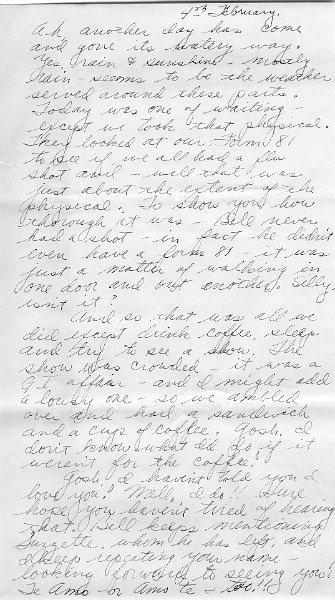 4th February.
Ah another day has come
and gone its watery way.
Yes, rain & sunshine - mostly
rain - seems to be the weather
served around these parts.
Today was one of waiting -
except we took that physical.
They looked at our Form 81
to see if we all had a flu
shot and - well that was
just about the extent of the
physical. To show you how
thorough it was - Bill never
had a shot - in fact he didn't
even have a form 81 - it was
just a matter of walking in
one door and out another. Silly
isn't it?
And so that was all we
did except drink coffee, sleep
and try to see a show. The
show was crowded - it was a
G.I. affair - and I might add
a lousy one - so we ambled
over and had a sandwich
and a cup of coffee. Gosh, I
don't know what I'd do if it
weren't for the coffee!
Gosh, I haven't told you I
love you! Well, I do!! Sure
hope you haven't tired of hearing
that. Bill keeps mentioning
Suzette, whom he has left, and
I keep repeating your name -
looking forward to seeing you!
Te Amo - or Amo te -